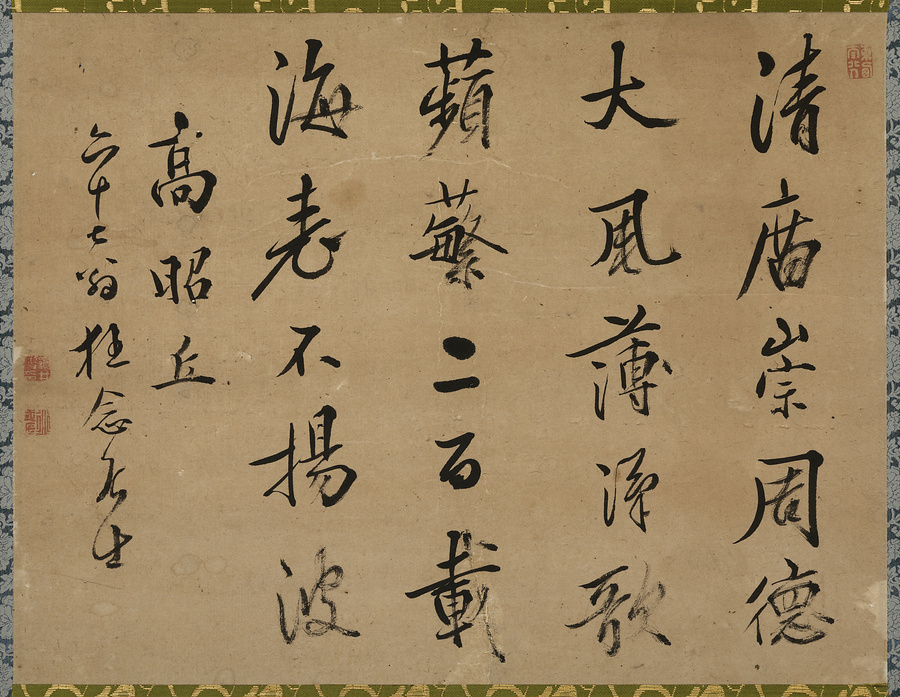 清庿崇周德
大風薄漢歌
蘋蘩二百載
海老不揚波
高昭丘
六十七翁狂念居士